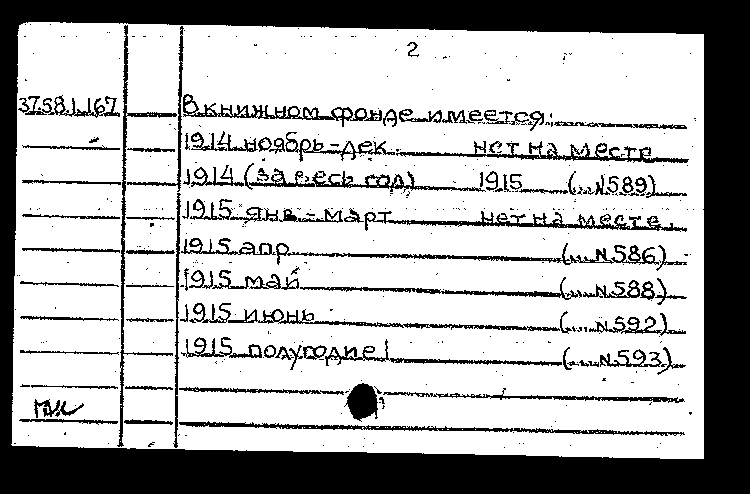 2
37.58.1.167 В книжном фонде имеется:
1914 ноябрь-дек. нет на месте
1914 (за весь год) 1915 (...N589)
1915 янв.-март нет на месте.
1915 апр (...N586)
1915 май (...N588)
1915 июнь (...N592)
1915 полугодие I (...N593)